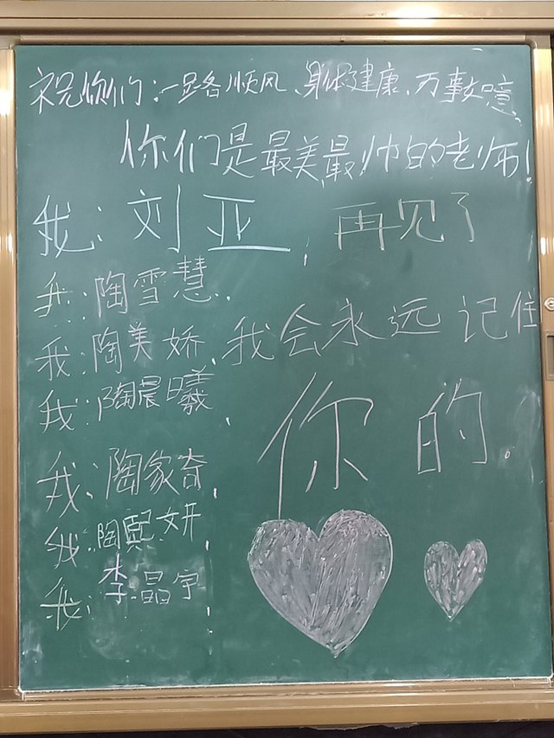 祝你们:一路顺风、身体健康、万事如意
你们是最美最帅的老师!
我:刘亚,再见了
我:陶雪慧.
我:陶美娇,我会永远记住
我:陶晨曦,
你的.
我:陶家奇,
我:陶熙妍,
我:李晶宇